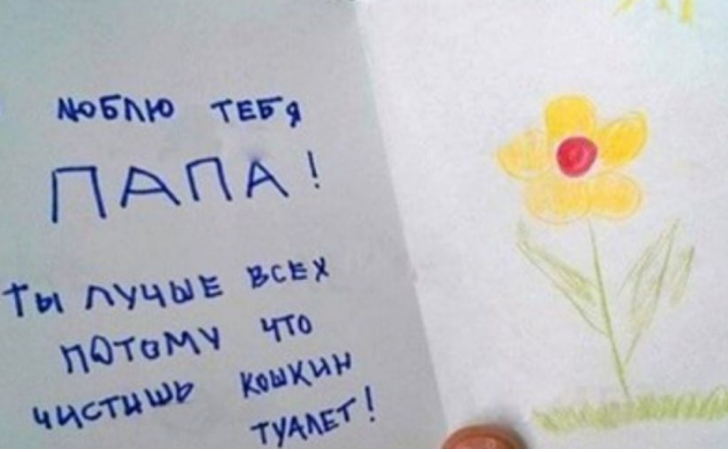 ЛЮБЛЮ ТЕБЯ
ПАПА!
ТЫ ЛУЧШЕ ВСЕХ
ПОТОМУ ЧТО
ЧИСТИШЬ КОШКИН
ТУАЛЕТ!